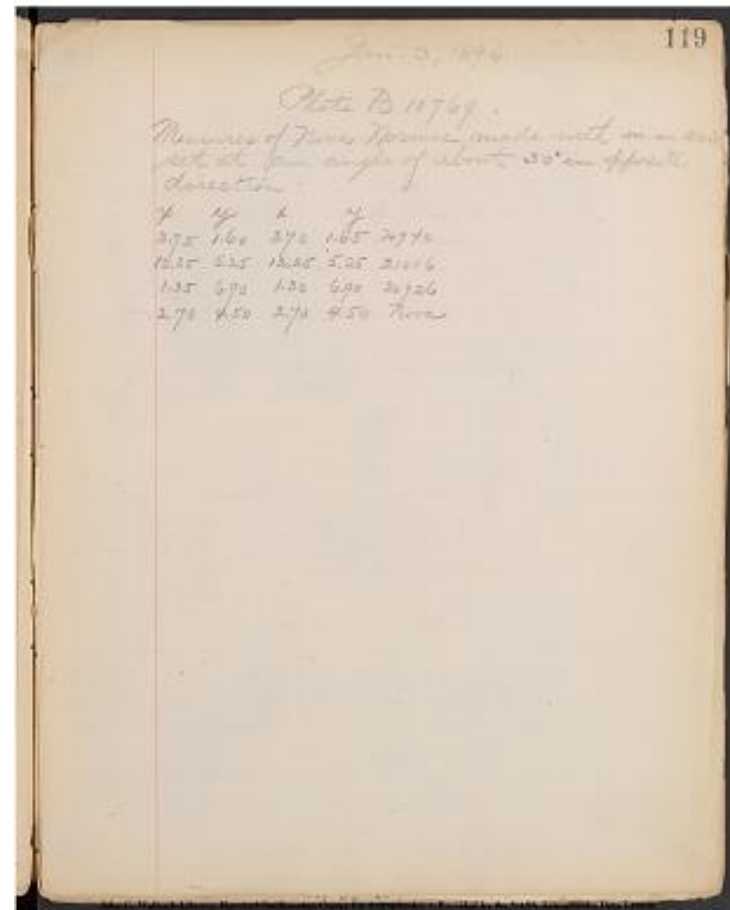 119
Jan. 3, 1894
Plate B 10769.
Measures of Nova Normae made with
set at an angle of about 30° in opposite
direction.
x y x y
2.75 1.60 2.70 1.65 20740
5.25 5.25
1.35 6.90 1.30 6.90 20726
2.70 4.50 2.70 4.50 Nova